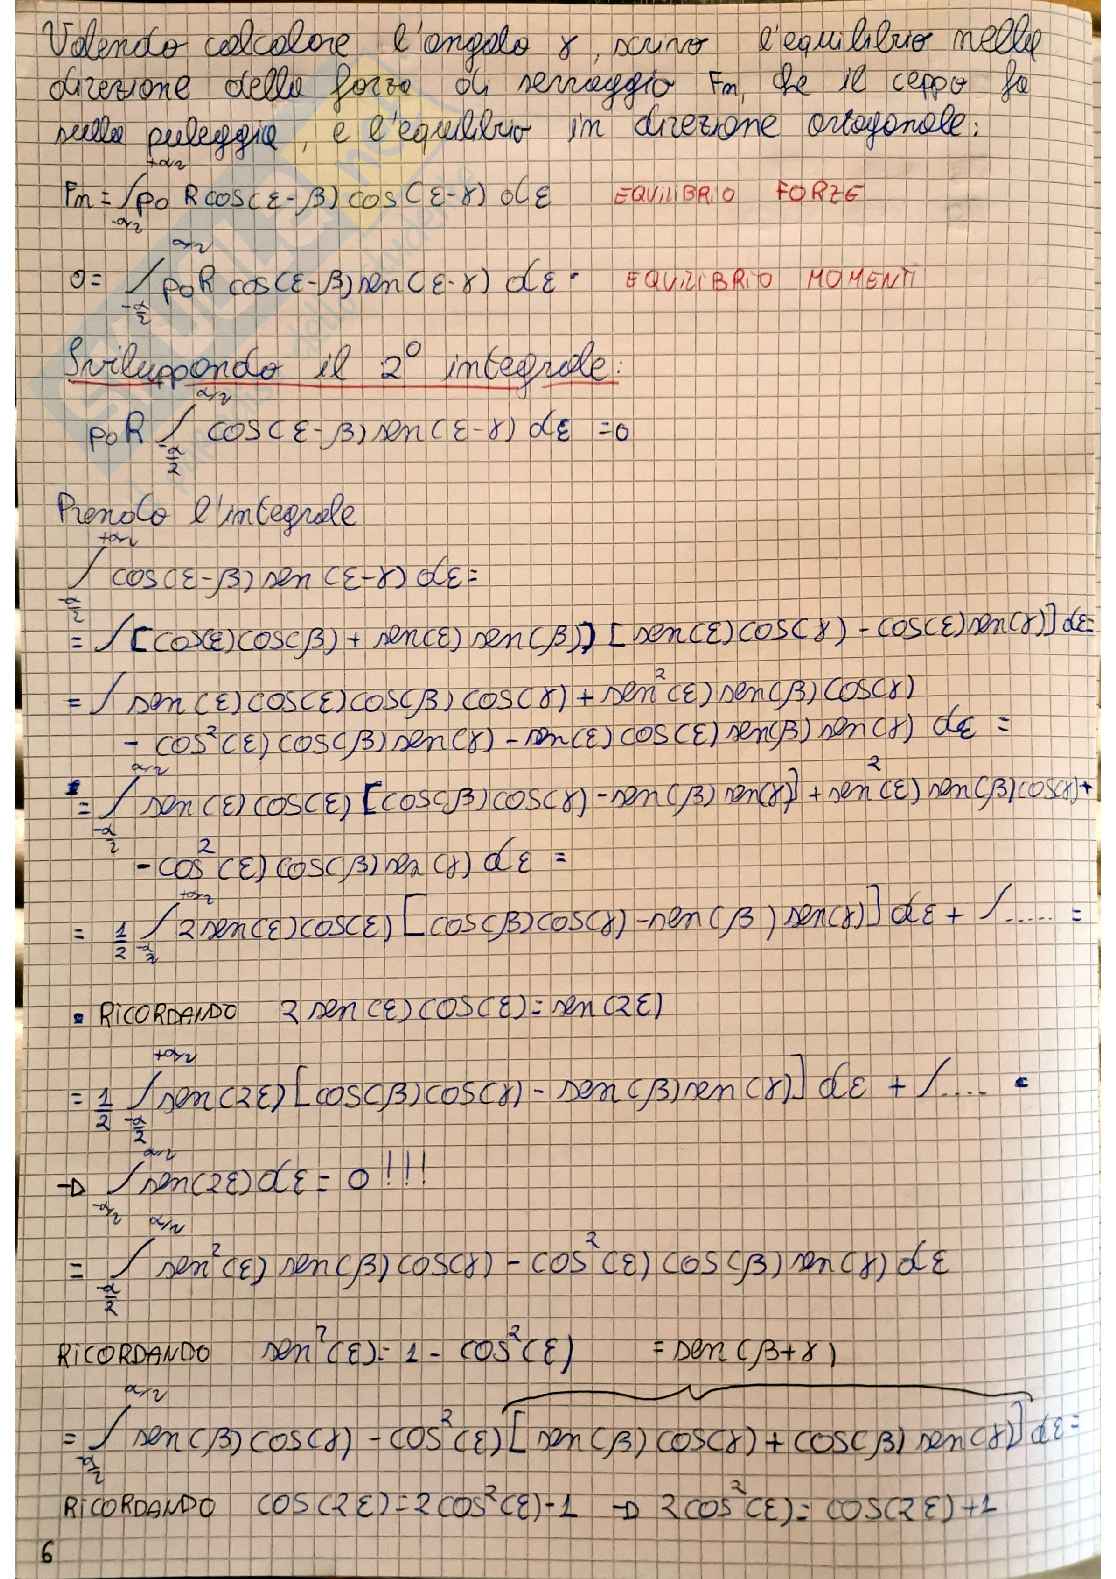 Volendo calcolare l'angolo γ, scrivo l'equilibrio nella
direzione della forza di serraggio Fn, che il ceppo fa
sulla puleggia, e l'equilibrio in direzione ortogonale:
Fn = ∫_{-α/2}^{+α/2} p0 R cos(ε-β) cos(ε-γ) dε EQUILIBRIO FORZE
0 = ∫_{-α/2}^{α/2} p0 R cos(ε-β) sen(ε-γ) dε EQUILIBRIO MOMENTI
Sviluppando il 2° integrale:
p0 R ∫_{-α/2}^{α/2} cos(ε-β) sen(ε-γ) dε = 0
Prendo l'integrale
∫_{-α/2}^{+α/2} cos(ε-β) sen(ε-γ) dε =
= ∫ [cos(ε) cos(β) + sen(ε) sen(β)] [sen(ε) cos(γ) - cos(ε) sen(γ)] dε =
= ∫ sen(ε) cos(ε) cos(β) cos(γ) + sen²(ε) sen(β) cos(γ)
- cos²(ε) cos(β) sen(γ) - sen(ε) cos(ε) sen(β) sen(γ) dε =
= ∫_{-α/2}^{α/2} sen(ε) cos(ε) [cos(β) cos(γ) - sen(β) sen(γ)] + sen²(ε) sen(β) cos(γ) +
- cos²(ε) cos(β) sen(γ) dε =
= 1/2 ∫_{-α/2}^{+α/2} 2 sen(ε) cos(ε) [cos(β) cos(γ) - sen(β) sen(γ)] dε + ∫ ..... =
• RICORDANDO 2 sen(ε) cos(ε) = sen(2ε)
= 1/2 ∫_{-α/2}^{+α/2} sen(2ε) [cos(β) cos(γ) - sen(β) sen(γ)] dε + ∫ .... =
→ ∫_{-α/2}^{α/2} sen(2ε) dε = 0 !!!
= ∫_{-α/2}^{α/2} sen²(ε) sen(β) cos(γ) - cos²(ε) cos(β) sen(γ) dε
RICORDANDO sen²(ε) = 1 - cos²(ε) = sen(β+γ)
= ∫_{-α/2}^{α/2} sen(β) cos(γ) - cos²(ε) [sen(β) cos(γ) + cos(β) sen(γ)] dε =
RICORDANDO cos(2ε) = 2cos²(ε) - 1 → 2cos²(ε) = cos(2ε) + 1
6